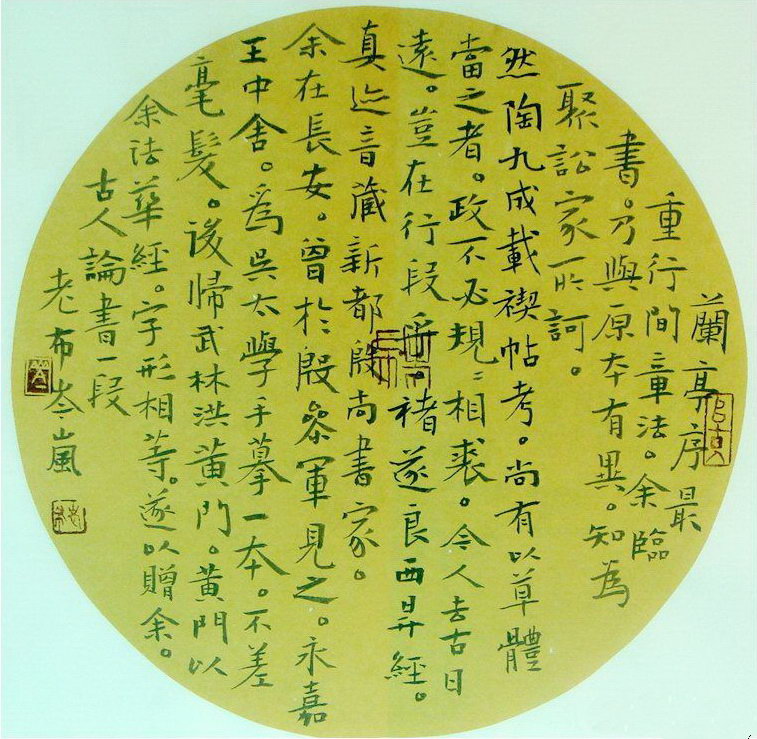 蘭亭序最
重行間章法。余臨
書。乃與原本有異。知為
聚訟家所訶。
然陶九成載禊帖考。尚有以草體
當之者。政不必規〻相襲。今人去古日
遠。豈在行段乎。褚遂良西昇經。
真迹音藏新都殷尚書家。
余在長安。曾於殷參軍見之。永嘉
王中舍。為吳太學手摹一本。不差
毫髮。後歸武林洪黃門。黃門以
余法華經。字形相等。遂以贈余。
古人論書一段
老布岑嵐